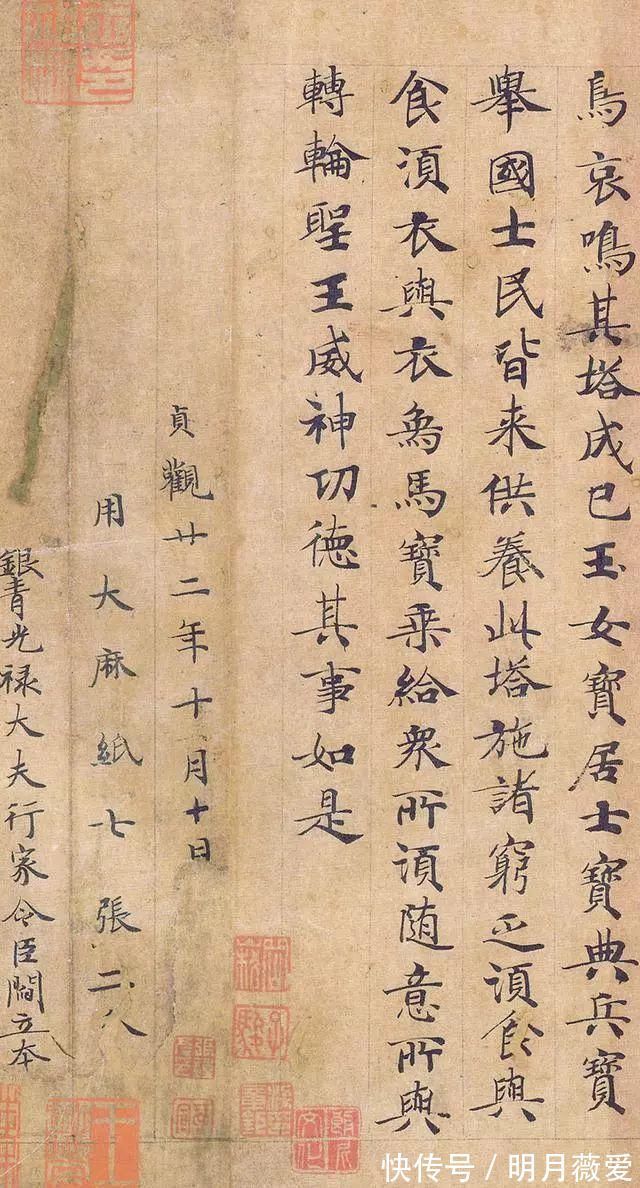 鳥哀鳴其塔成已玉女寶居士寶典兵寶
舉國士民皆来供養此塔施諸窮乏須食與
食須衣與衣象馬寶乘給衆所須随意所與
轉輪聖王威神功德其事如是
貞觀廿二年十月十日
用大麻紙七張二
銀青光禄大夫行家令臣閻立本
快传号／明月薇爱